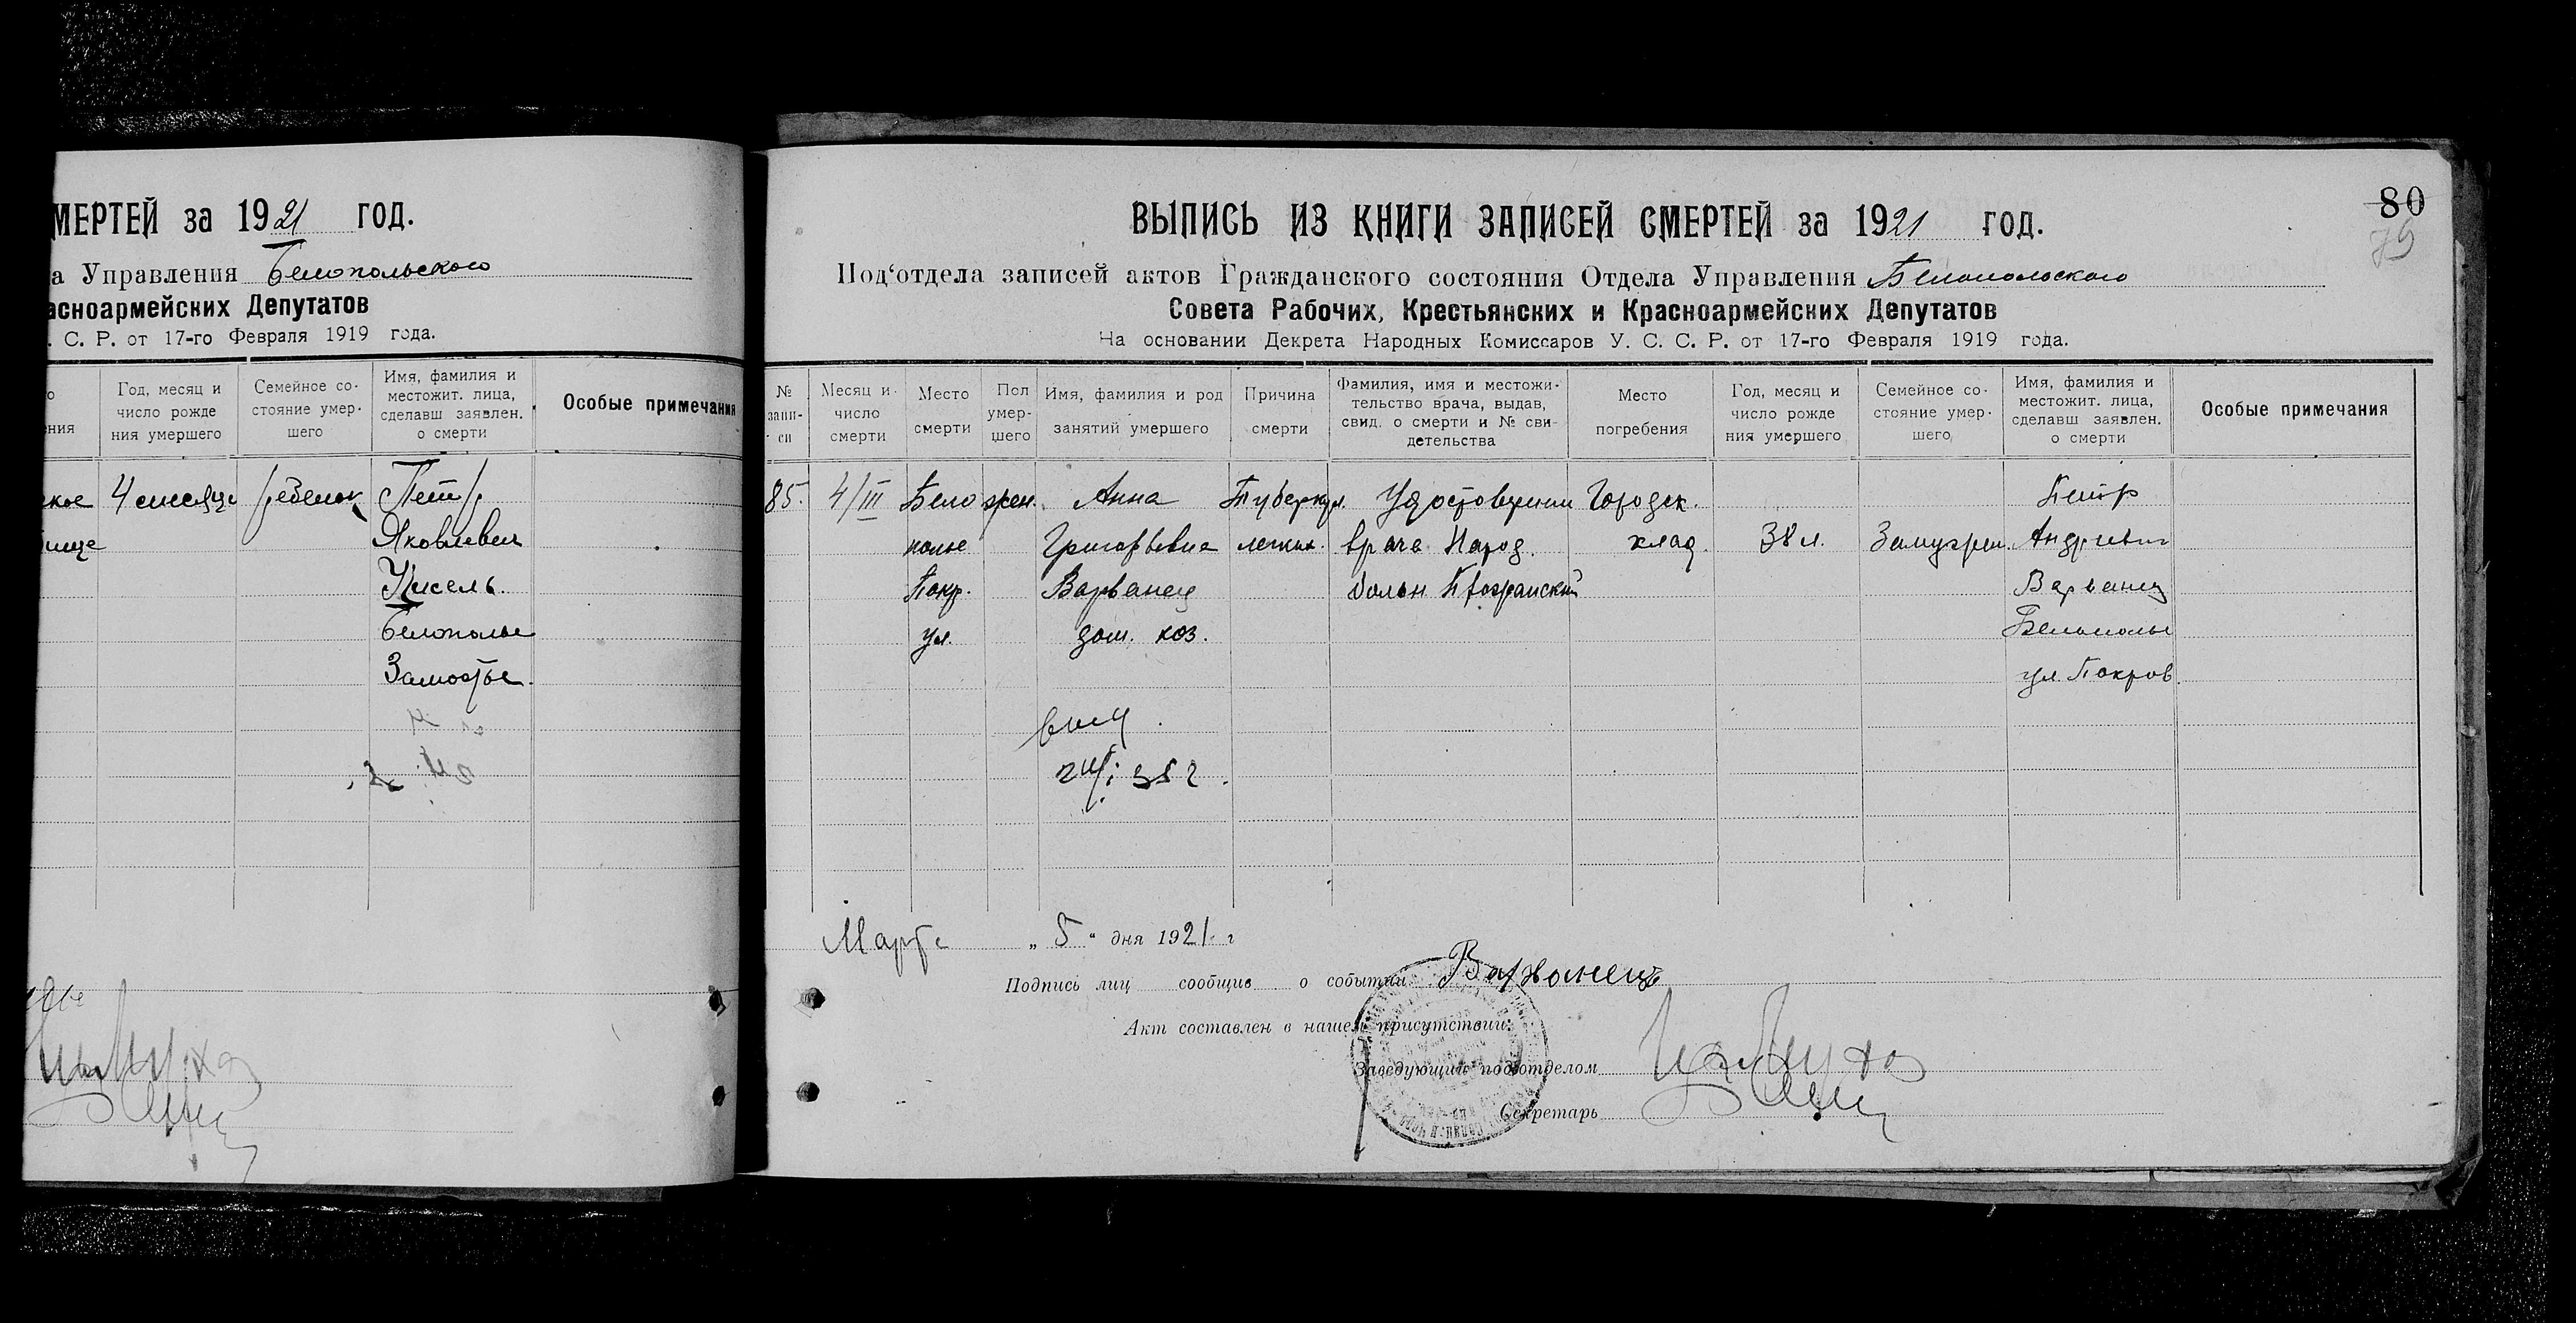 МЕРТЕЙ за 1921 ГОД.
а Управления Белопольского
асноармейских Депутатов
. С. Р. от 17-го Февраля 1919 года.
о
ния
Год, месяц и
число рожде
ния умершего
Семейное со-
стояние умер-
шего
Имя, фамилия и
местожит. лица,
сделавш заявлен.
о смерти
Особые примечания
кое 4 месяца ребенок Петр
ище Яковлевич
Кисель
Белополье
Замостье.
80
79
ВЫПИСЬ ИЗ КНИГИ ЗАПИСЕЙ СМЕРТЕЙ за 1921 ГОД.
Под'отдела записей актов Гражданского состояния Отдела Управления Белопольского
Совета Рабочих, Крестьянских и Красноармейских Депутатов
На основании Декрета Народных Комиссаров У. С. С. Р. от 17-го Февраля 1919 года.
№
запи-
си
Месяц и
число
смерти
Место
смерти
Пол
умер-
шего
Имя, фамилия и род
занятий умершего
Причина
смерти
Фамилия, имя и местожи-
тельство врача, выдав,
свид. о смерти и № сви-
детельства
Место
погребения
Год, месяц и
число рожде
ния умершего
Семейное со-
стояние умер-
шего
Имя, фамилия и
местожит. лица,
сделавш заявлен.
о смерти
Особые примечания
85. 4/III Бело жен. Анна Туберкул. Удостоверении Городск. Петр
полье Григорьевна легких. врача Народ. клад. 38 л. Замужем. Андреевич
Покр. Варванец больн Варванец
ул. дом. хоз. Белополье
ул. Покров.
Марта „ 5 " дня 1921 г
Подпись лиц сообщив о событии Варванець
Акт составлен в нашем присутствии:
Заведующий под'отделом
Секретарь